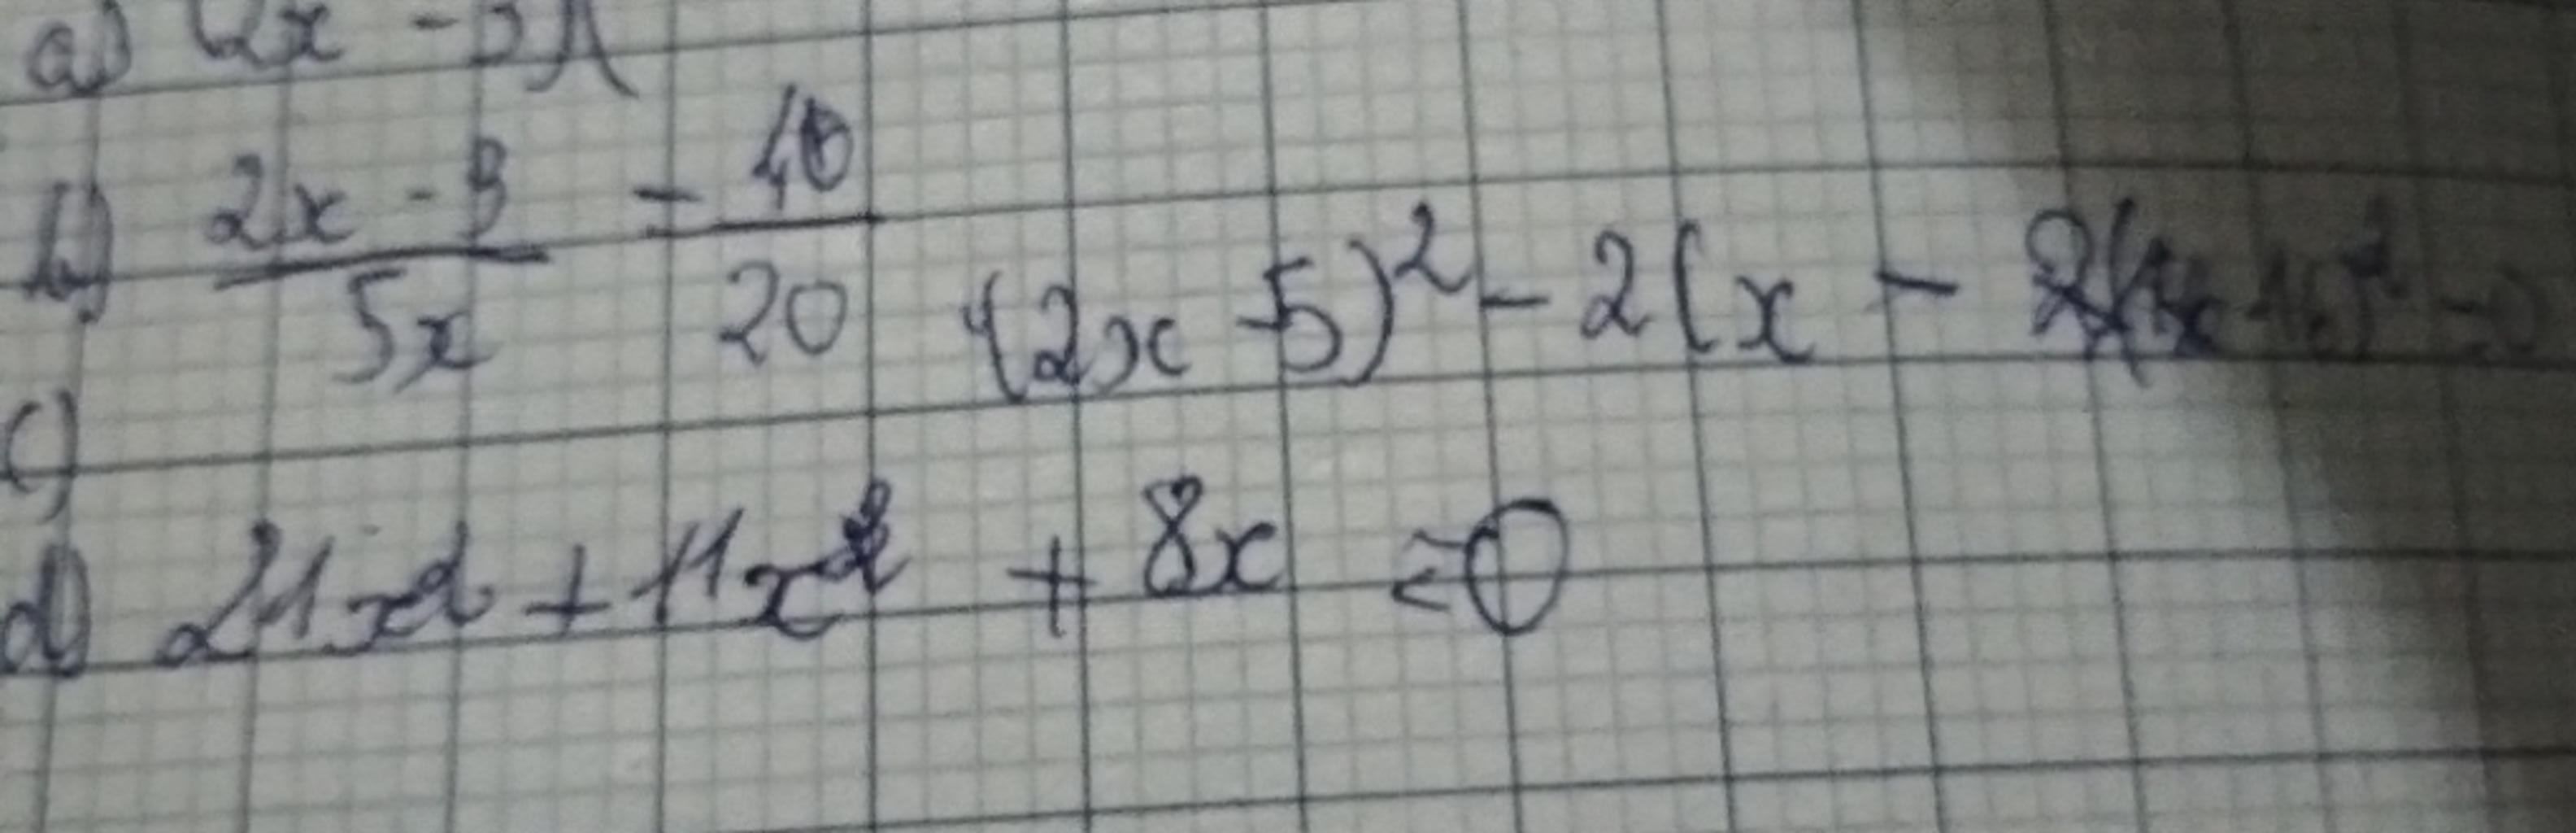 a) (2x - 5)(
b) 2x - 3 / 5x = 40 / 20
c) (2x - 5)² - 2(x -
d) 21x² + 11x² + 8x = 0